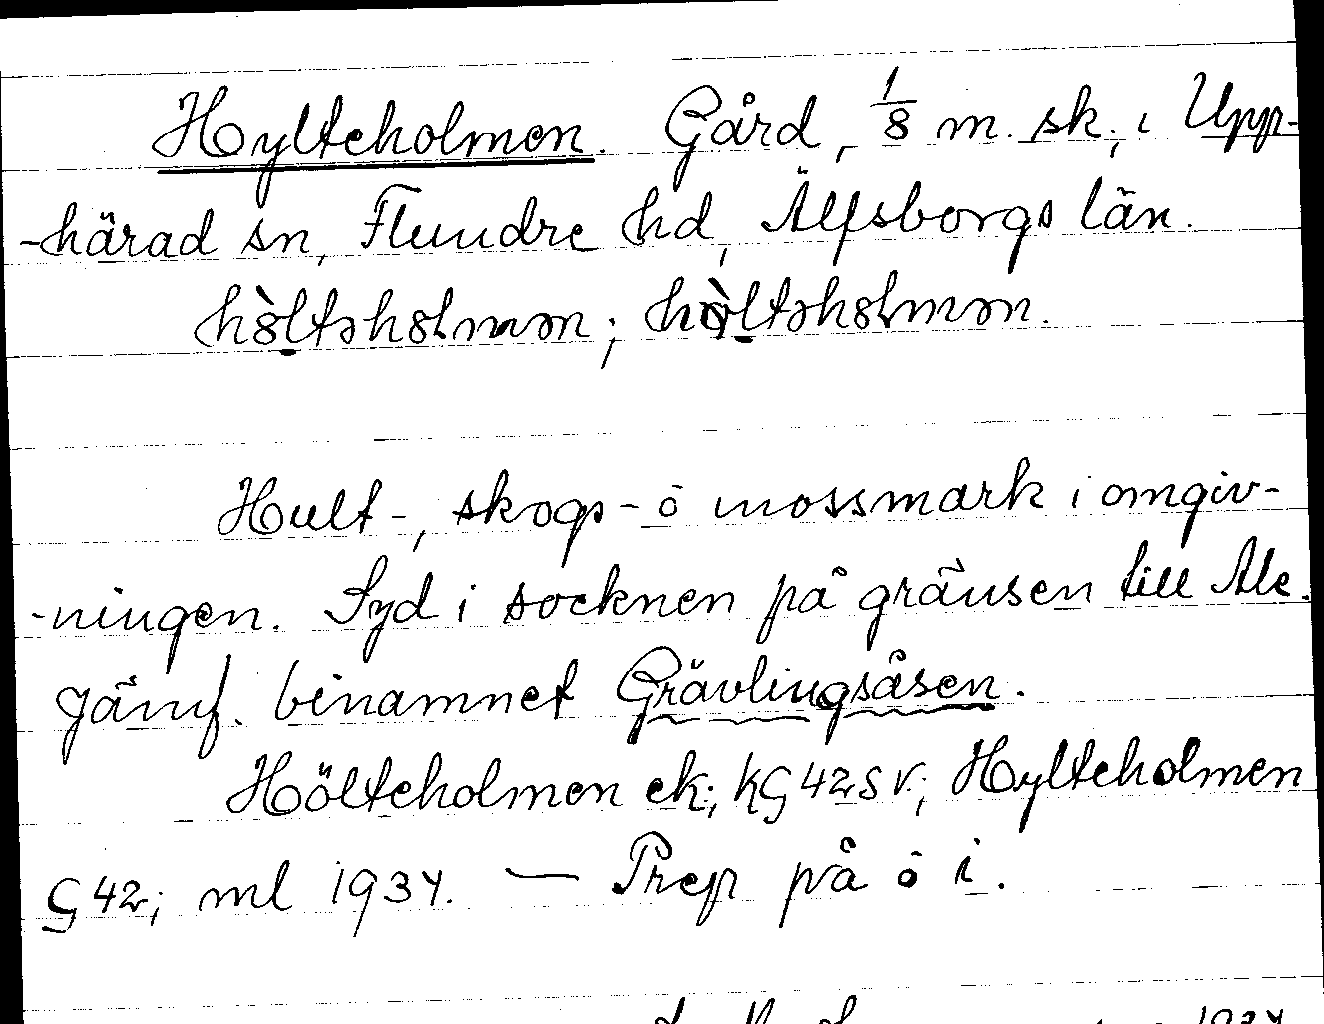 Hylteholmen. Gård, 1/8 m. sk., i Upp-
-härad sn, Flundre hd, Älfsborgs län.
Hult-, skogs- o mossmark i omgiv-
-ningen. Syd i socknen på gränsen till Ale.
Jämf. binamnet Grävlingsåsen.
Hölteholmen ek; KG 42 SV; Hylteholmen
G 42; ml 1934. — Prep på o i.
1934